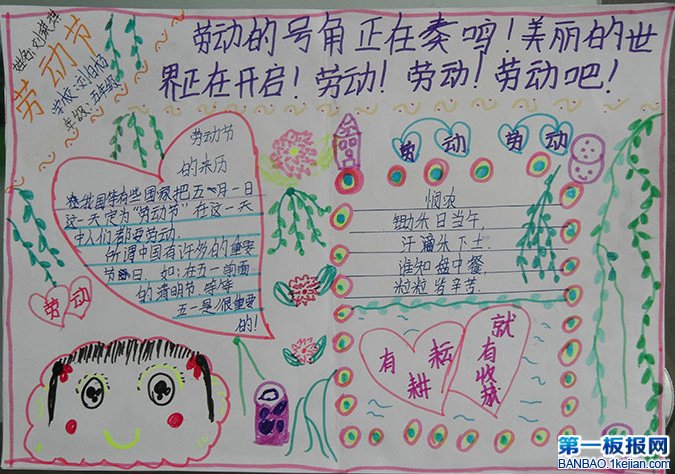 劳动节
年级：五年级
劳动的号角正在奏鸣！美丽的世
界正在开启！劳动！劳动！劳动吧！
劳动节
的来历
我国年有些国家把五月一日
这一天定为"劳动节"在这一天
中人们都要劳动
所谓中国有许多的重要
节日．如：在五一前面
的清明节 等等
五一是很重要
的！
劳动
劳动 劳动
悯农
锄禾日当午
汗滴禾下土
谁知盘中餐
粒粒皆辛苦．
有耕耘
就有收获
第一板报网
BANBAO.1kejian.com